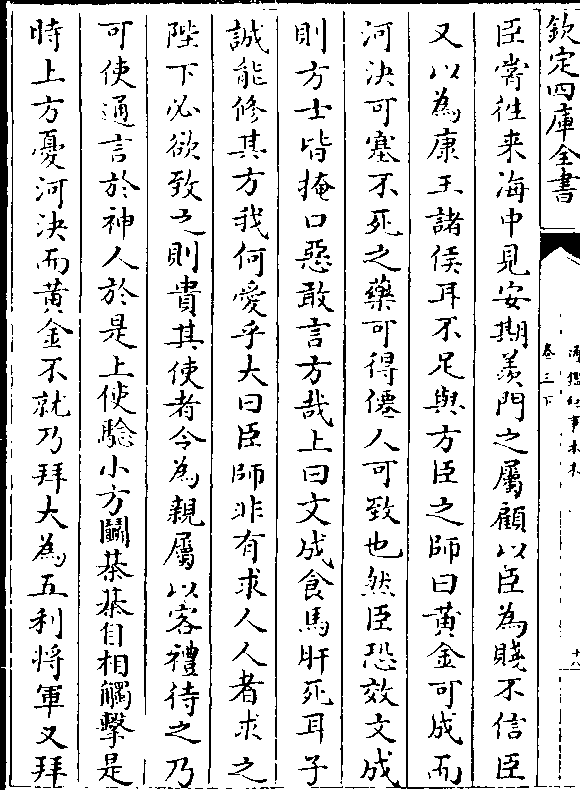 欽定四庫全書
卷三下
臣嘗往来海中見安期羨門之屬顧以臣為賤不信臣
又以為康王諸侯耳不足與方臣之師曰黄金可成而
河決可塞不死之藥可得僊人可致也然臣恐效文成
則方士皆掩口惡敢言方哉上曰文成食馬肝死耳子
誠能修其方我何愛乎大曰臣師非有求人人者求之
陛下必欲致之則貴其使者令為親屬以客禮待之乃
可使通言於神人於是上使驗小方鬭棊棊自相觸擊是
時上方憂河決而黄金不就乃拜大為五利將軍又拜